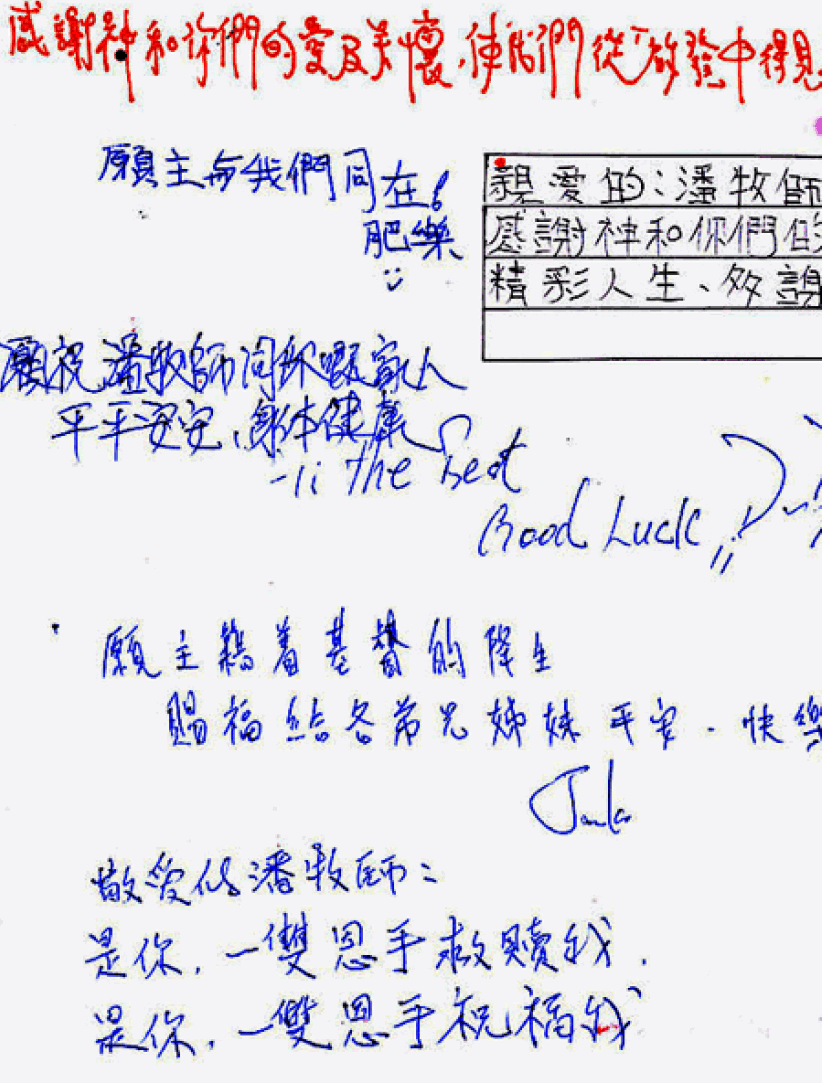 感謝神和你們的愛及关懷,使我們從啟發中得見
願主與我們同在!
肥樂
親愛的:潘牧師
感謝神和你們的
精彩人生、多謝
願祝潘牧師同你嘅家人
平平安安,身体健康
the Best
Good Luck
願主藉着基督的降生
賜福給各弟兄姊妹平安.快樂
敬愛的潘牧師:
是你,一雙恩手救贖我.
是你,一雙恩手祝福我